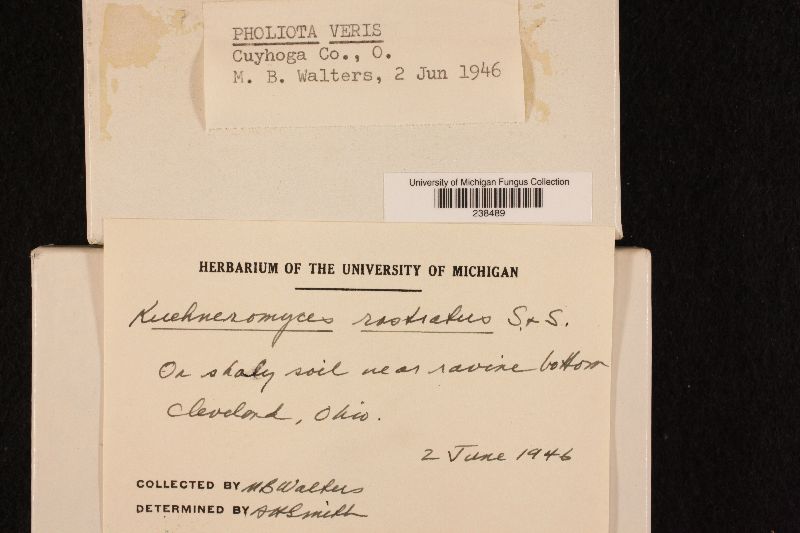 PHOLIOTA VERIS
Cuyhoga Co., O.
M. B. Walters, 2 Jun 1946
University of Michigan Fungus Collection
238489
HERBARIUM OF THE UNIVERSITY OF MICHIGAN
Kuehneromyces rostratus S. & S.
On shaly soil near ravine bottom
Cleveland, Ohio.
2 June 1946
COLLECTED BY MBWalters
DETERMINED BY AHSmith